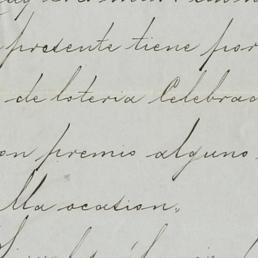 presente tiene por
de loteria Celebrad
on premio alguno
lla ocation.